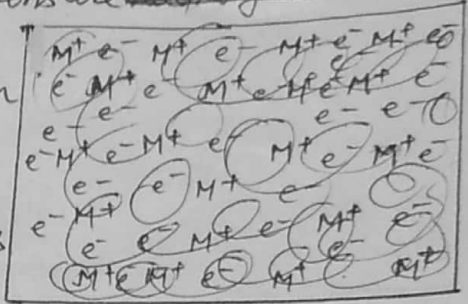 M⁺ e⁻ M⁺ e⁻ M⁺ e⁻ M⁺ e⁻
e⁻ M⁺ e⁻ M⁺ e⁻ M⁺ e⁻ M⁺ e⁻
e⁻ e⁻ e⁻ e⁻
e⁻ M⁺ e⁻ M⁺ e⁻ M⁺ e⁻ M⁺ e⁻
e⁻ e⁻ M⁺ e⁻
e⁻ M⁺ M⁺ e⁻ M⁺ e⁻
e⁻ e⁻ e⁻
M⁺ e M⁺ e⁻ M⁺ M⁺